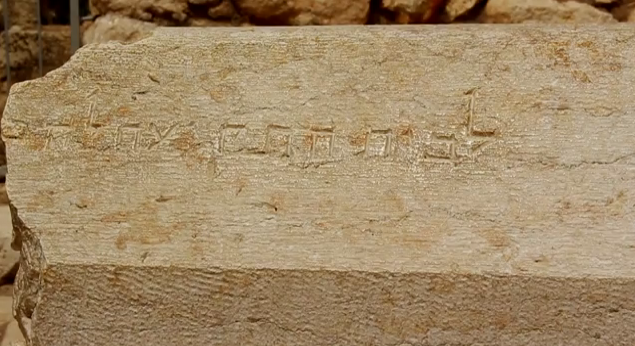 לבית התקיעה